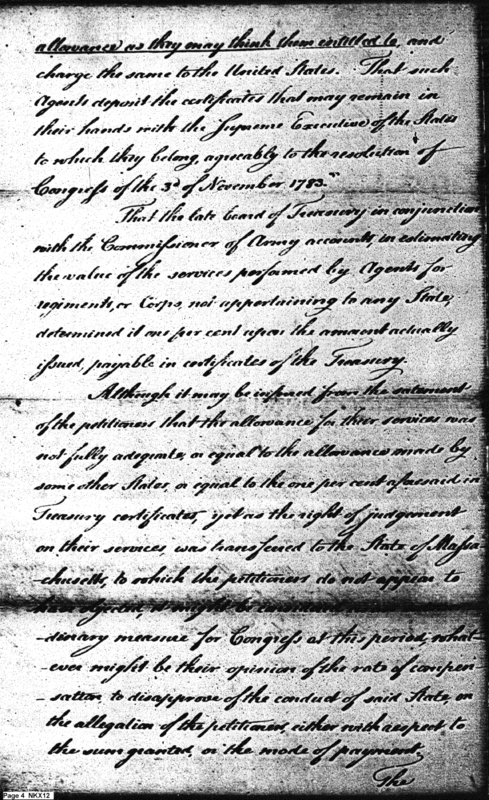 allowance as they may think them entitled to, and
charge the same to the United States. That such
Agents deposit the certificates that may remain in
their hands with the Supreme Executive of the States
to which they belong, agreeably to the resolution of
Congress of the 3d of November 1783."
That the late board of Treasury in conjunction
with the Commissioner of Army accounts, in estimating
the value of the services performed by Agents for
regiments, or Corps, not appertaining to any State,
determined it one per cent upon the amount actually
issued, payable in certificates of the Treasury.
Although it may be infered from the statement
of the petitioners that the allowance for their services was
not fully adequate, or equal to the allowance made by
some other States, or equal to the one per cent aforesaid in
Treasury certificates, yet as the right of judgement
on their services, was transferred to the State of Massa
-chusetts, to which the petitioners do not appear to
have objected, it might be considered
-dinary measure for Congress at this period, what-
-ever might be their opinion of the rate of compen-
-sation to disapprove of the conduct of said State, on
the allegation of the petitioners, either with respect to
the sum granted, or the mode of payment.
The
Page 4 NKX12